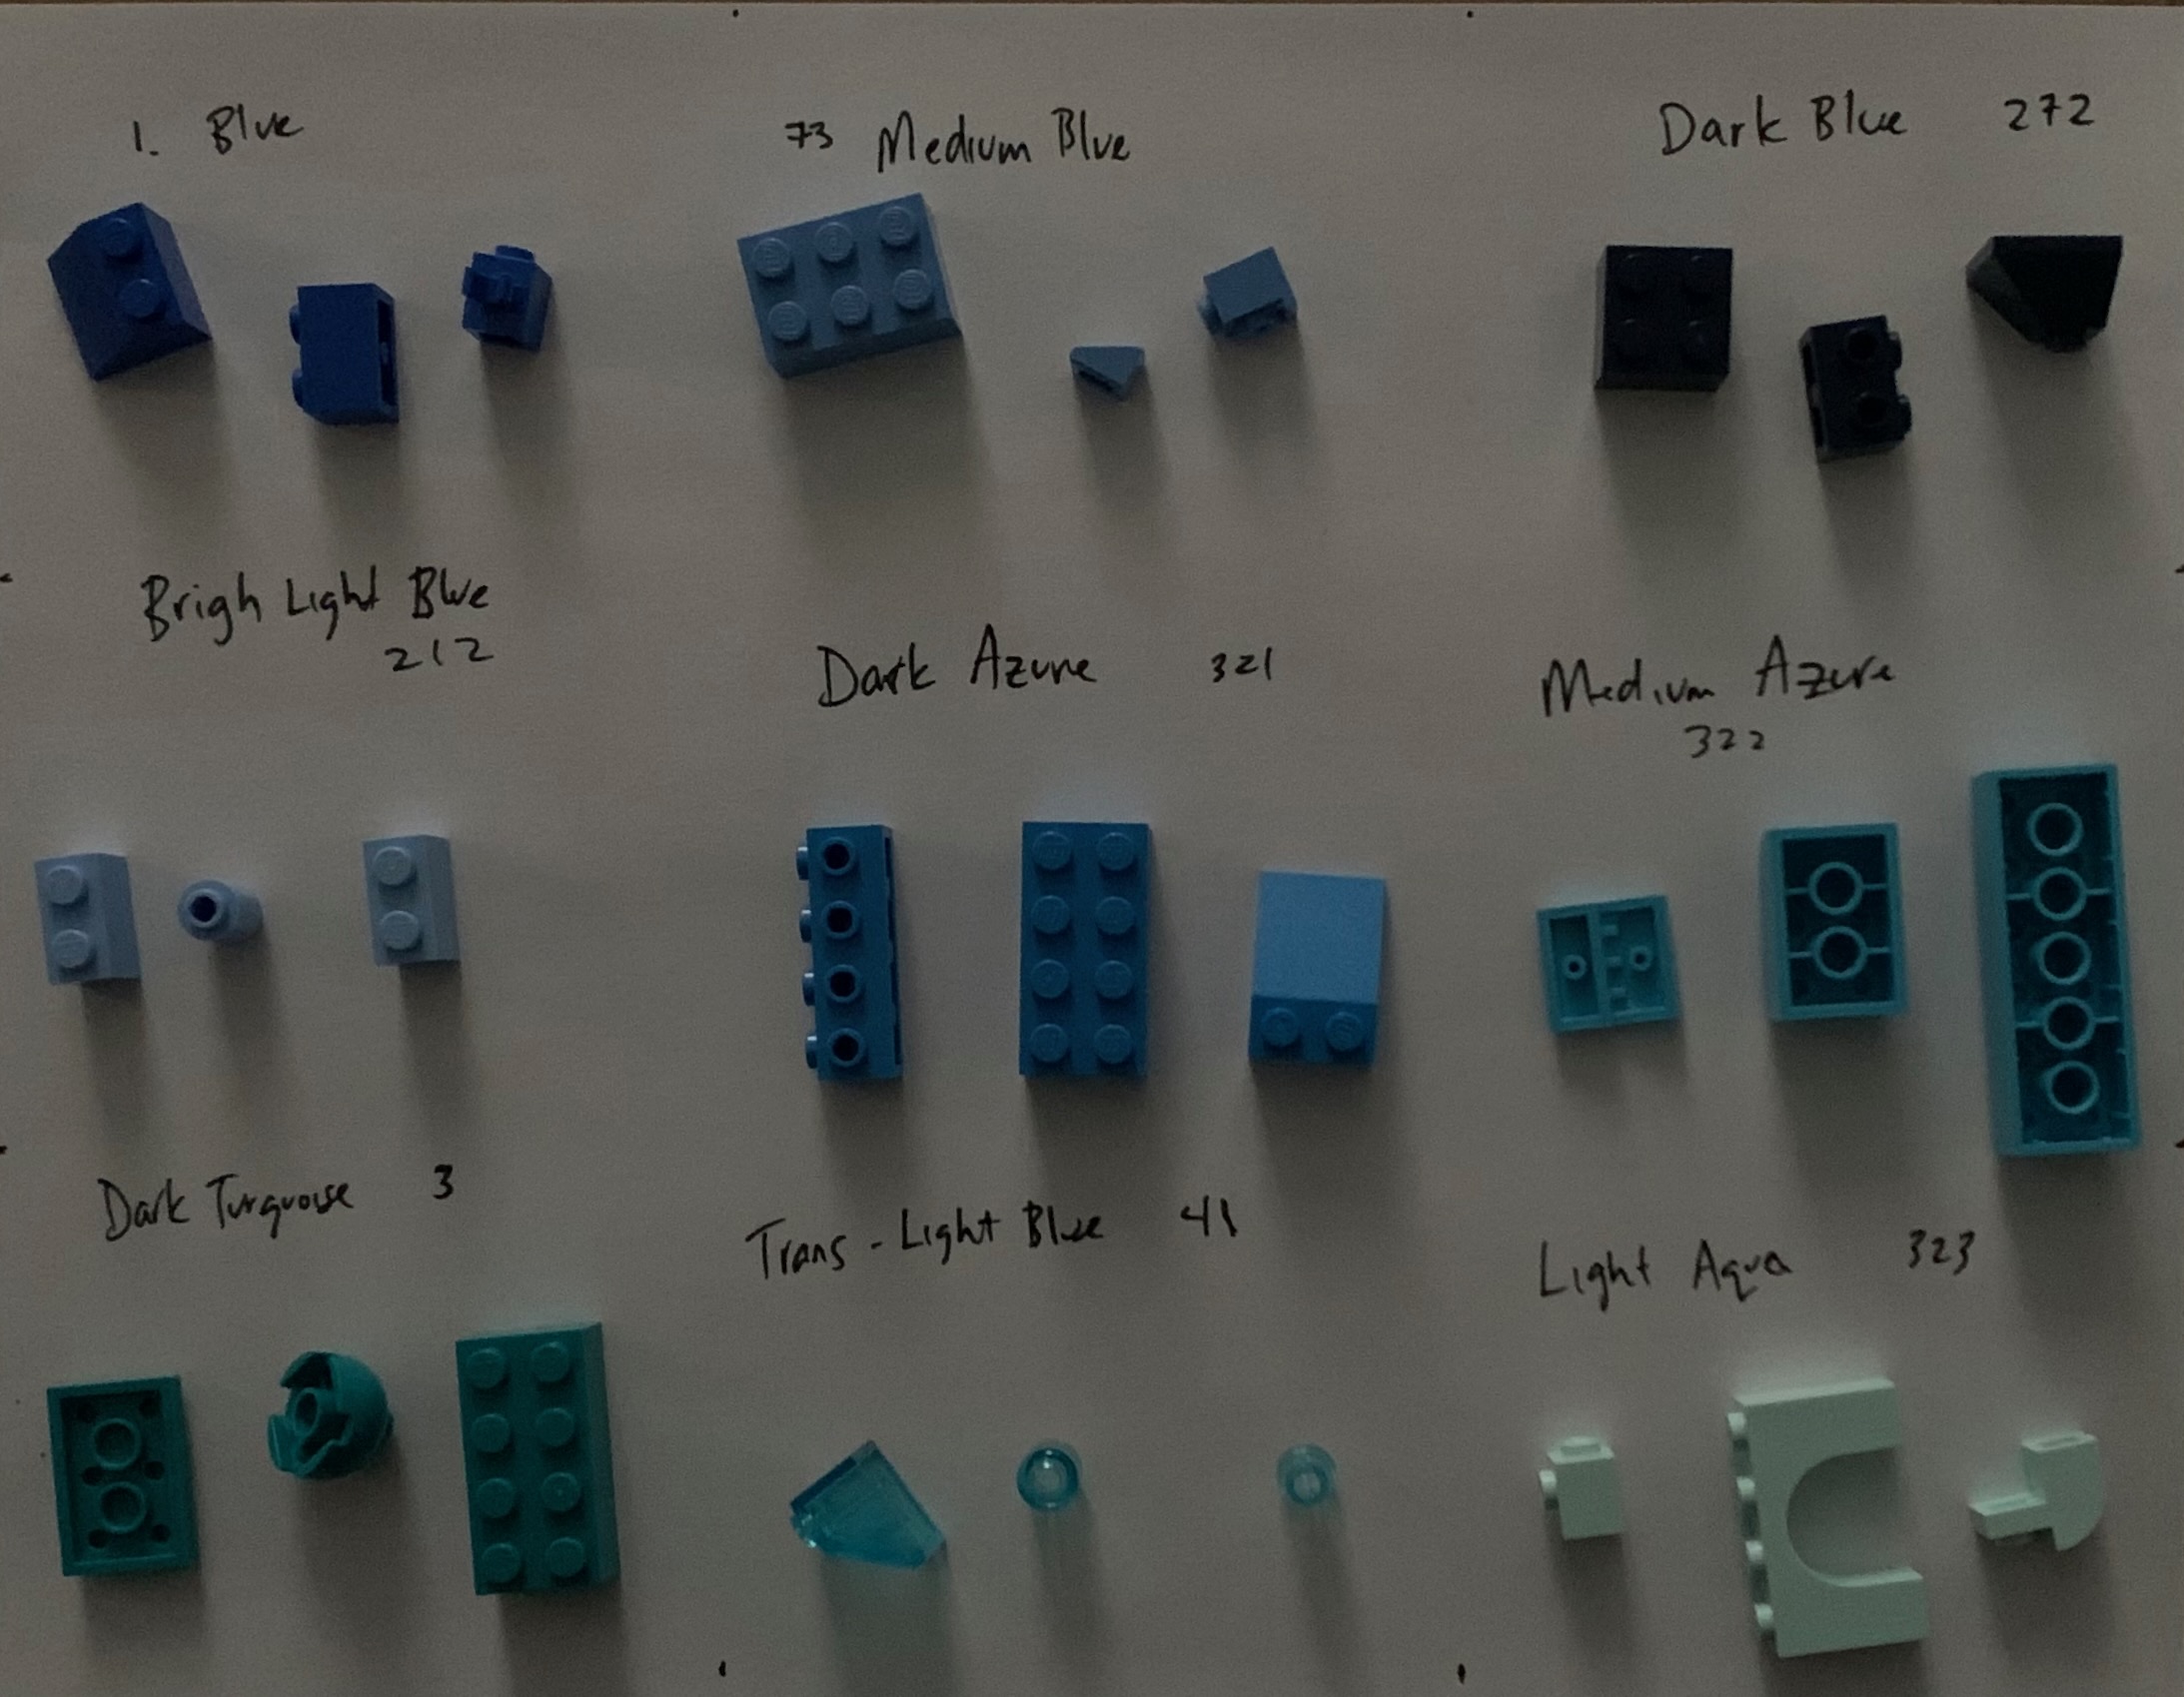 1. Blue
73 Medium Blue
Dark Blue 272
Brigh Light Blue
212
Dark Azure 321
Medium Azure
322
Dark Turquoise 3
Trans-Light Blue 41
Light Aqua 323